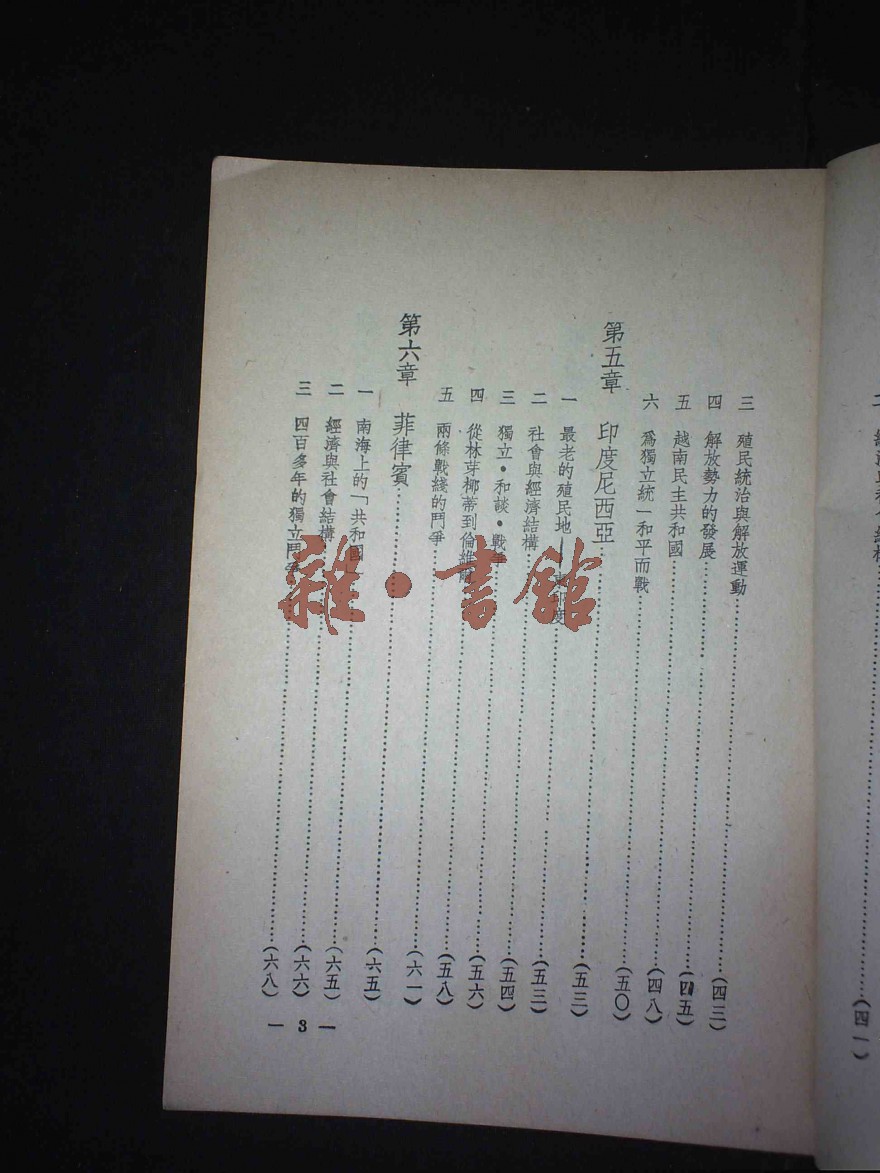 三 殖民統治與解放運動……(四三)
四 解放勢力的發展……(四五)
五 越南民主共和國……(四八)
六 爲獨立統一和平而戰……(五〇)
第五章 印度尼西亞……(五三)
一 最老的殖民地——東印度……(五三)
二 社會與經濟結構……(五四)
三 獨立・和談・戰爭……(五六)
四 從林芽椰蒂到倫維爾……(五八)
五 兩條戰綫的鬥爭……(六一)
第六章 菲律賓……(六五)
一 南海上的「共和國」……(六五)
二 經濟與社會結構……(六六)
三 四百多年的獨立鬥爭……(六八)
— 3 —
……(四一)
雜・書館